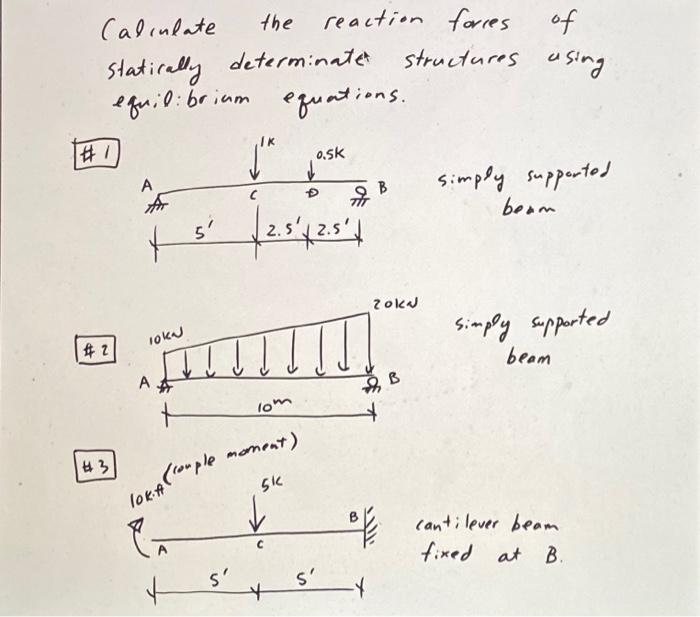 Calculate the reaction forces of
statically determinate structures using
equilibrium equations.
#1
1K
0.5K
A
C
D
B
simply supported
beam
5'
2.5'
2.5'
20kN
10kN
simply supported
beam
#2
A
B
10m
#3
(couple moment)
10k.ft
5k
B
A
C
cantilever beam
fixed at B.
5'
5'